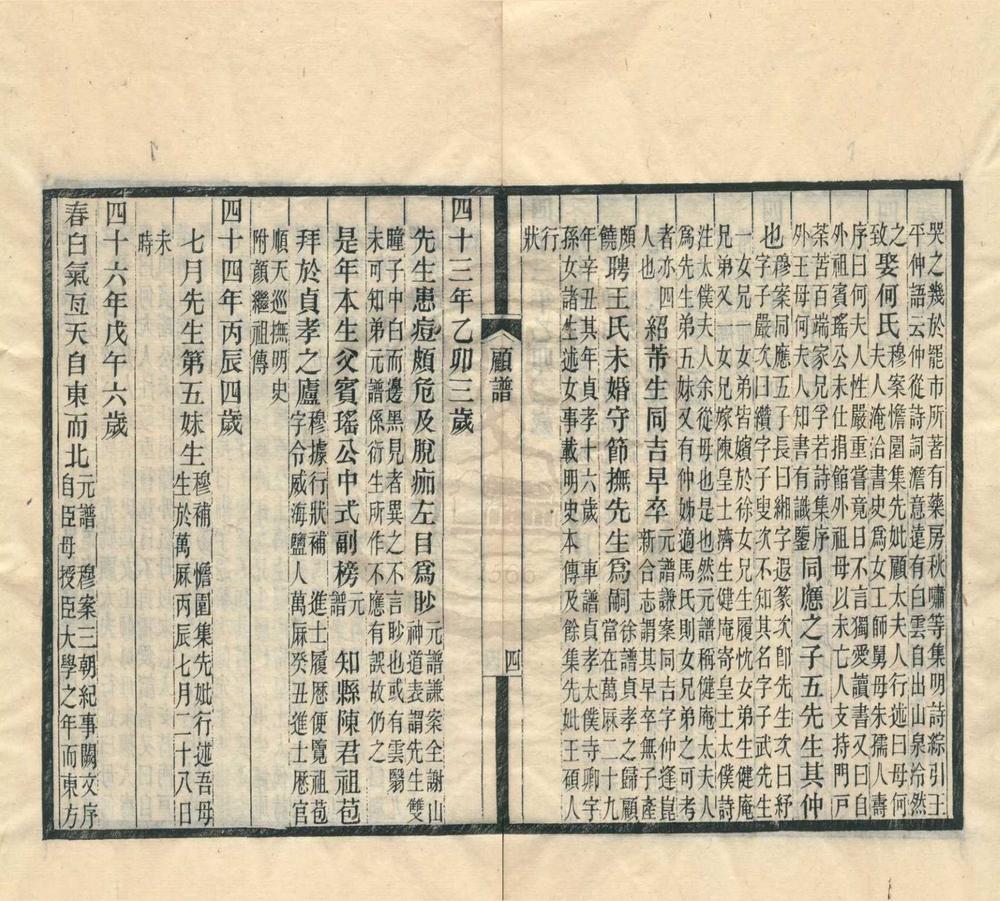 哭之幾於罷市所著有藥房秋嘯等集明詩綜引王
平仲語云仲從詩詞澹意遠有白雲自出山泉泠然
之致娶何氏穆案憺園集先妣顧太夫人行述曰母何
夫人淹洽書史爲女工師舅母朱孺人壽
序曰何夫人性嚴重嘗竟日不言獨愛讀書又曰自
外祖賓瑤公未仕捐館外祖母以未亡人支持門戶
荼苦百端家兄孚若詩集序
外王母何夫人知書有識鑒同應之子五先生其仲
也穆案同應五子長曰緗字遐篆次卽先生次曰紓
字子嚴次曰纘字子叟次不知其名字子武先生
一女兄一女弟皆嬪於徐女兄生履忱女弟生健庵
兄弟又一女兄嫁陳皇士濟生健庵寄皇士太僕詩
注太僕夫人余從母也是也然元譜稱健庵太夫人
爲先生弟五妹又有仲姊適馬氏則女兄弟之可考
者亦四
人也紹芾生同吉早卒元譜謙案同吉字仲逢崑
新合志謂其早卒無子產
頗饒聘王氏未婚守節撫先生爲嗣徐譜貞孝之歸顧
當在萬厤二十九
年辛丑其年貞孝十六歲車譜貞孝太僕寺卿宇
孫女諸生述女事載明史本傳及餘集先妣王碩人
行
狀
顧譜
四
四十三年乙卯三歲
先生患痘頗危及脫痂左目爲眇元譜謙案全謝山
神道表謂先生雙
瞳子中白而邊黑見者異之不言眇也或有雲翳
未可知弟元譜係衍生所作不應有誤故仍之
是年本生父賓瑤公中式副榜元
譜知縣陳君祖苞
拜於貞孝之廬穆據行狀補進士履厯便覽祖苞
字令威海鹽人萬厤癸丑進士厯官
順天巡撫明史
附顏繼祖傳
四十四年丙辰四歲
七月先生第五妹生穆補憺園集先妣行述吾母
生於萬厤丙辰七月二十八日
未
時
四十六年戊午六歲
春白氣亙天自東而北元譜穆案三朝紀事闕文序
自臣母授臣大學之年而東方